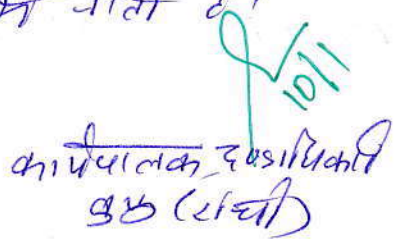 जाता है।
10/1
कार्यपालक दण्डाधिकारी
बुण्डू (राँची)